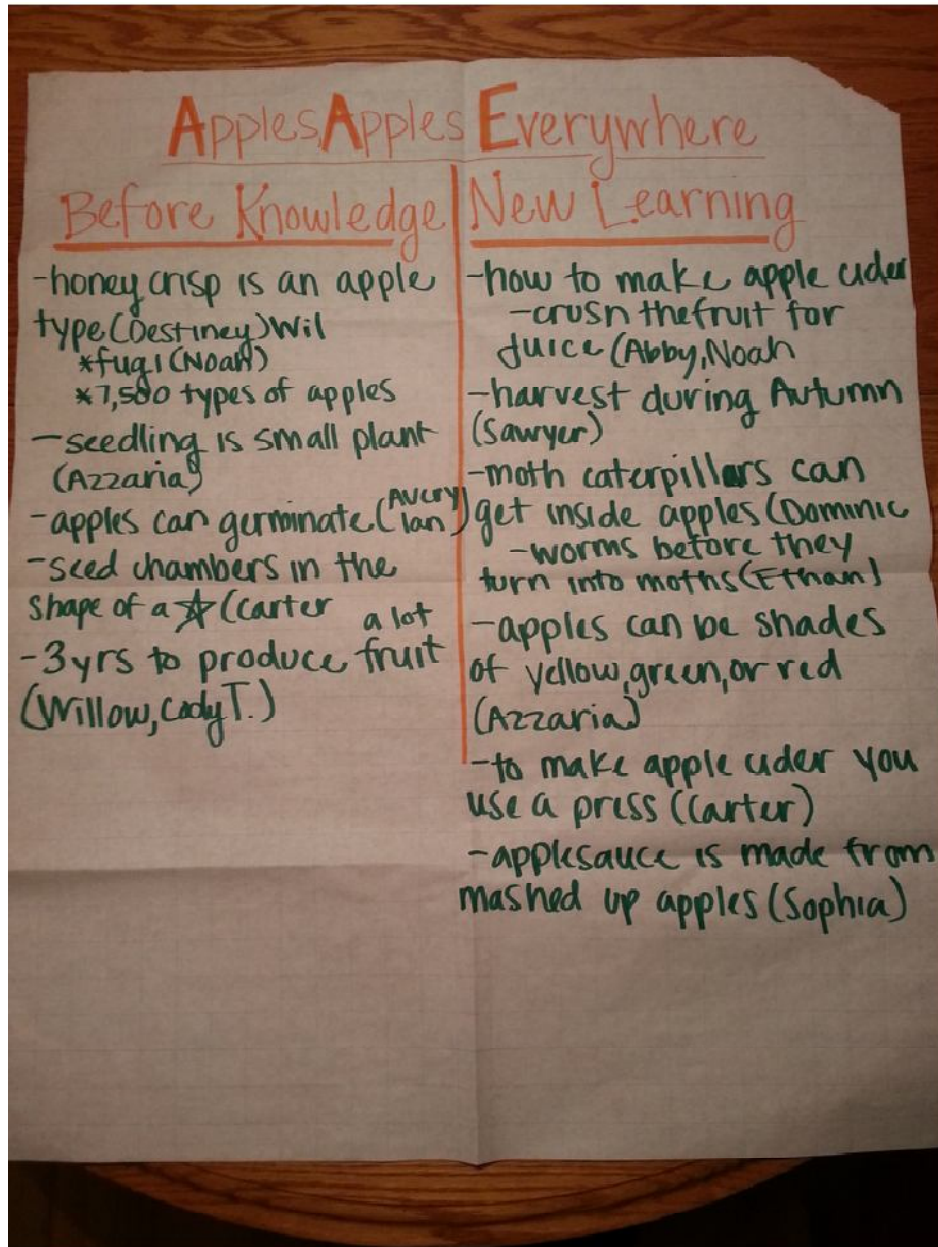 Apples, Apples Everywhere
Before Knowledge
-honey crisp is an apple
type (Destiney) Wil
*fugi (Noah)
*7,500 types of apples
-seedling is small plant
(Azzaria)
-apples can germinate (Avery
Ian)
-seed chambers in the
shape of a ☆ (Carter
a lot
-3 yrs to produce fruit
(Willow, Cody T.)
New Learning
-how to make apple cider
-crush the fruit for
juice (Abby, Noah
-harvest during Autumn
(Sawyer)
-moth caterpillars can
get inside apples (Dominic
-worms before they
turn into moths (Ethan)
-apples can be shades
of yellow, green, or red
(Azzaria)
-to make apple cider you
use a press (Carter)
-applesauce is made from
mashed up apples (Sophia)